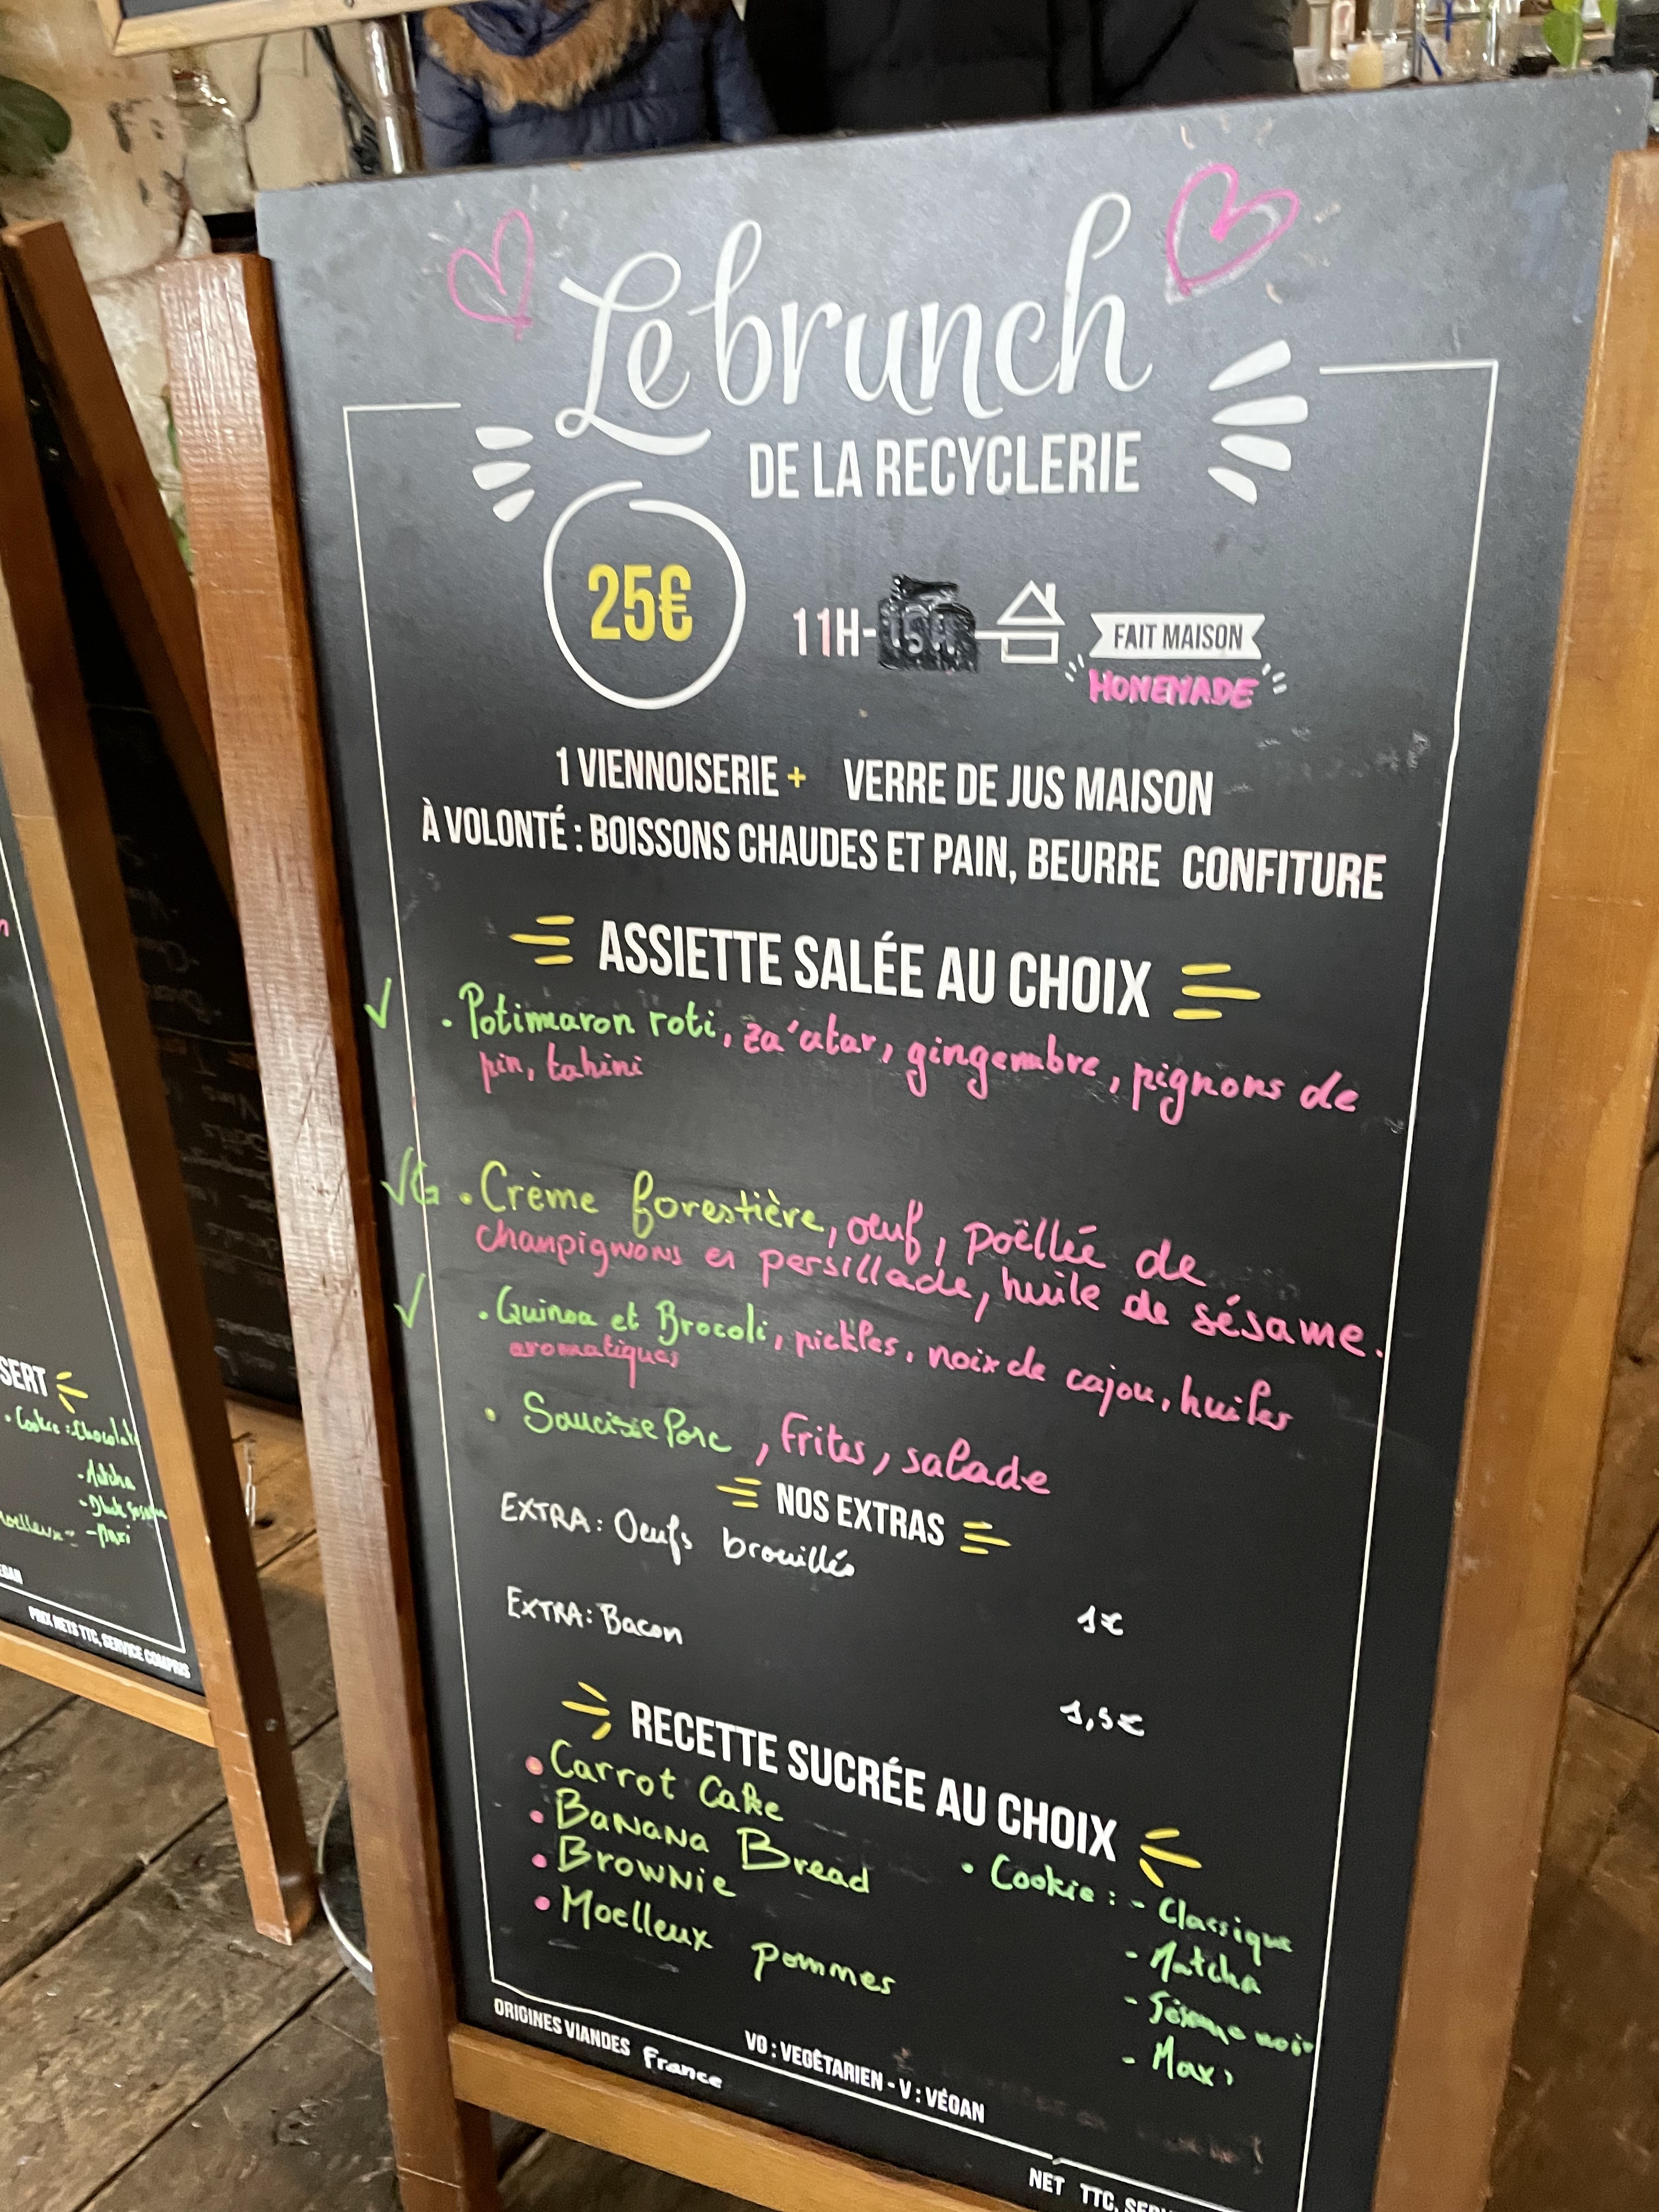 Le brunch
DE LA RECYCLERIE
25€
11H-15H
FAIT MAISON
HOMEMADE
1 VIENNOISERIE + VERRE DE JUS MAISON
À VOLONTÉ : BOISSONS CHAUDES ET PAIN, BEURRE CONFITURE
ASSIETTE SALÉE AU CHOIX
V . Potimaron roti, za'atar, gingembre, pignons de
pin, tahini
VG . Crème forestière, oeuf, poëllée de
champignons en persillade, huile de sésame.
V . Quinoa et Brocoli, pickles, noix de cajou, huiles
aromatiques
. Saucisse Porc, frites, salade
NOS EXTRAS
EXTRA: Oeufs brouillés
1€
EXTRA: Bacon
1,5€
RECETTE SUCRÉE AU CHOIX
• Carrot Cake
• BaNaNa Bread
• BrowNie
• Moelleux pommes
• Cookie : - Classique
- Matcha
- Sésame noir
- Maxi
ORIGINES VIANDES France
VO : VEGÉTARIEN - V : VÉGAN
NET TTC,
SERT
• Cookie : Chocolat
- Matcha
- Black Sesame
Moelleux
- Maxi
PRIX NETS TTC, SERVICE COMPRIS